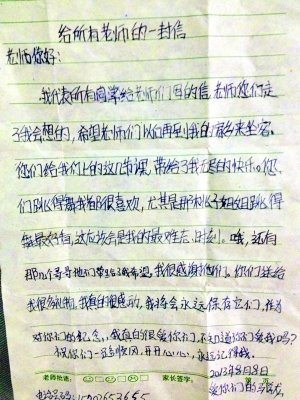 给所有老师的一封信
老师你好：
我代表所有同学给老师们回的信，老师您们走
了我会想的，希望老师们以后再到我的家乡来坐客。
您们给我们上的这几节课，带给了我无尽的快乐。您
们跳得舞我都很喜欢，尤其是那   姐姐跳得
舞最好看，这应该会是我的最难忘的时刻。哦，还有
那几个哥哥他们带给了我希望，我很感谢他们，你们送给
我很多礼物，我真的很感动，我将会永远保存它们，作为
对你们的纪念，我真的很爱你们，不知道你们爱我吗？
祝你们一路顺风，开开心心，永远记得我。
2013年8月8日
老师批语： 家长签字：
爱你们的